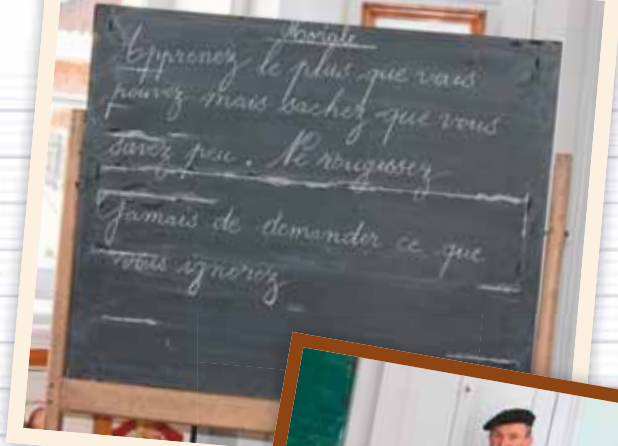 Morale
Apprenez le plus que vous
pouvez mais sachez que vous
savez peu. Ne rougissez
Jamais de demander ce que
vous ignorez